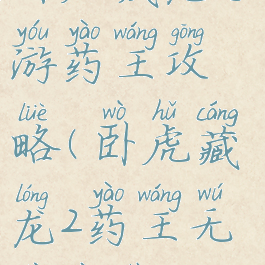 yóu yào wáng gōng
游药王攻
lüè wò hǔ cáng
略(卧虎藏
lóng yào wáng wú
龙2药王无